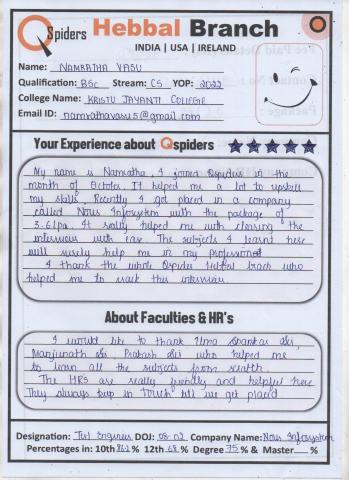 Q Spiders Hebbal Branch
INDIA | USA | IRELAND
Name: NAMRATHA VASU
Qualification: BSc Stream: CS YOP: 2022
College Name: KRISTU JAYANTI COLLEGE
Email ID: namrathavasu5@gmail.com
Your Experience about Qspiders
My name is Namratha, I joined Qspiders in the
month of October. It helped me a lot to upskill
my skills. Recently I got placed in a company
called Nous Infosystem with the package of
3.6lpa. It really helped me with clearing the
interview with ease. The subjects I learnt here
will surely help me in my profession
I thank the whole Qspider Hebbal brach who
helped me to crack this interview.
About Faculties & HR's
I would like to thank Uma Shankar Sir,
Manjunath Sir, Prakash Sir who helped me
to learn all the subjects from scratch.
The HRs are really friendly and helpful here
They always keep in touch till we get placed
Designation: Test Engineer DOJ: 08-02 Company Name: Nous Infosystem
Percentages in: 10th % 12th 68 % Degree 75 % & Master %